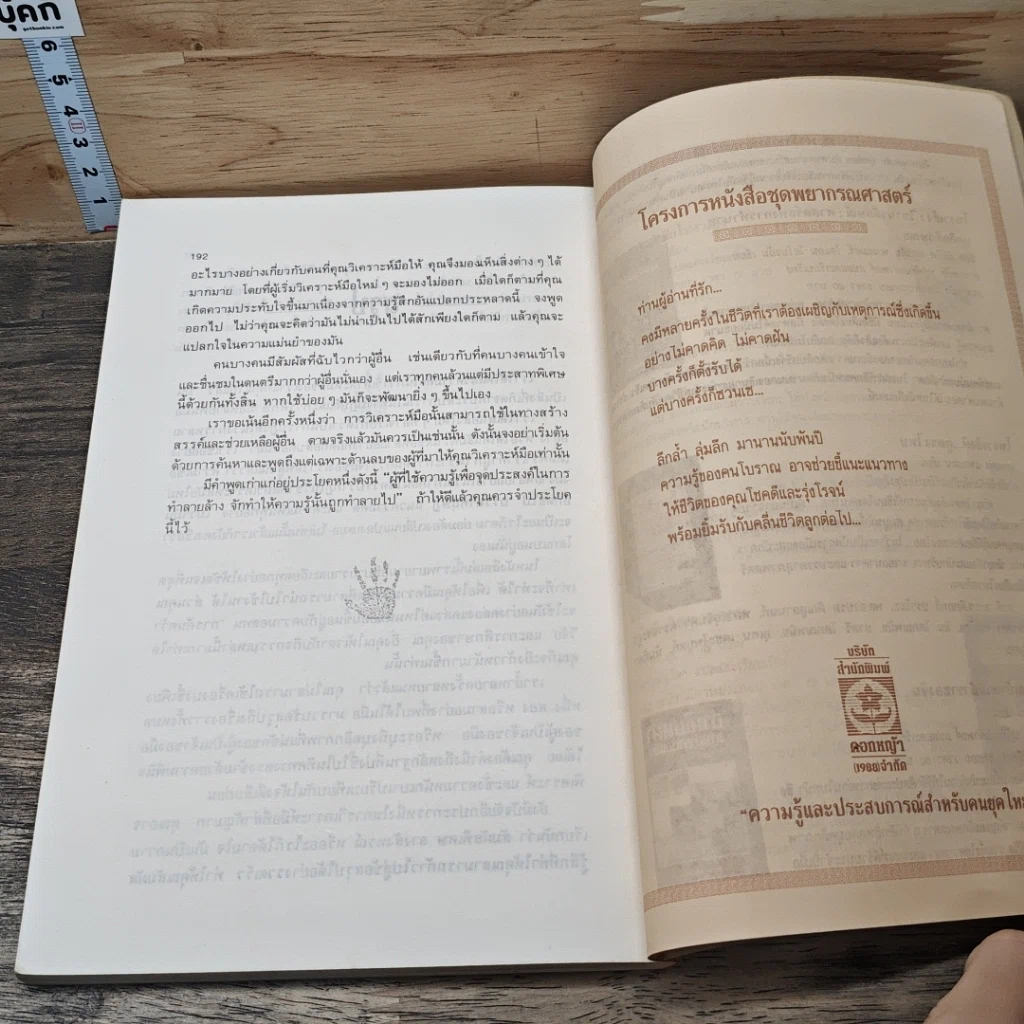 บุ๊คก
6
5
4
3
2
1
192
อะไรบางอย่างเกี่ยวกับคนที่คุณวิเคราะห์มือให้ คุณจึงมองเห็นสิ่งต่าง ๆ ได้
มากมาย โดยที่ผู้เริ่มวิเคราะห์มือใหม่ ๆ จะมองไม่ออก เมื่อใดก็ตามที่คุณ
เกิดความประทับใจขึ้นมาเนื่องจากความรู้สึกอันแปลกประหลาดนี้ จงพูด
ออกไป ไม่ว่าคุณจะคิดว่ามันไม่น่าเป็นไปได้สักเพียงใดก็ตาม แล้วคุณจะ
แปลกใจในความแม่นยำของมัน
คนบางคนมีสัมผัสที่ฉับไวกว่าผู้อื่น เช่นเดียวกับที่คนบางคนเข้าใจ
และชื่นชมในดนตรีมากกว่าผู้อื่นนั่นเอง แต่เราทุกคนล้วนแต่มีประสาทพิเศษ
นี้ด้วยกันทั้งสิ้น หากใช้บ่อย ๆ มันก็จะพัฒนายิ่ง ๆ ขึ้นไปเอง
เราขอเน้นอีกครั้งหนึ่งว่า การวิเคราะห์มือนั้นสามารถใช้ในทางสร้าง
สรรค์และช่วยเหลือผู้อื่น ตามจริงแล้วมันควรเป็นเช่นนั้น ดังนั้นจงอย่าเริ่มต้น
ด้วยการค้นหาและพูดถึงแต่เฉพาะด้านลบของผู้ที่มาให้คุณวิเคราะห์มือเท่านั้น
มีคำพูดเก่าแก่อยู่ประโยคหนึ่งดังนี้ "ผู้ที่ใช้ความรู้เพื่อจุดประสงค์ในการ
ทำลายล้าง จักทำให้ความรู้นั้นถูกทำลายไป" ถ้าให้ดีแล้วคุณควรจำประโยค
นี้ไว้
โครงการหนังสือชุดพยากรณศาสตร์
ท่านผู้อ่านที่รัก...
คงมีหลายครั้งในชีวิตที่เราต้องเผชิญกับเหตุการณ์ซึ่งเกิดขึ้น
อย่างไม่คาดคิด ไม่คาดฝัน
บางครั้งก็ตั้งรับได้
แต่บางครั้งก็ซวนเซ...
ลึกล้ำ ลุ่มลึก มานานนับพันปี
ความรู้ของคนโบราณ อาจช่วยชี้แนะแนวทาง
ให้ชีวิตของคุณโชคดีและรุ่งโรจน์
พร้อมยิ้มรับกับคลื่นชีวิตลูกต่อไป...
บริษัท
สำนักพิมพ์
ดอกหญ้า
(1988)จำกัด
"ความรู้และประสบการณ์สำหรับคนยุคใหม่